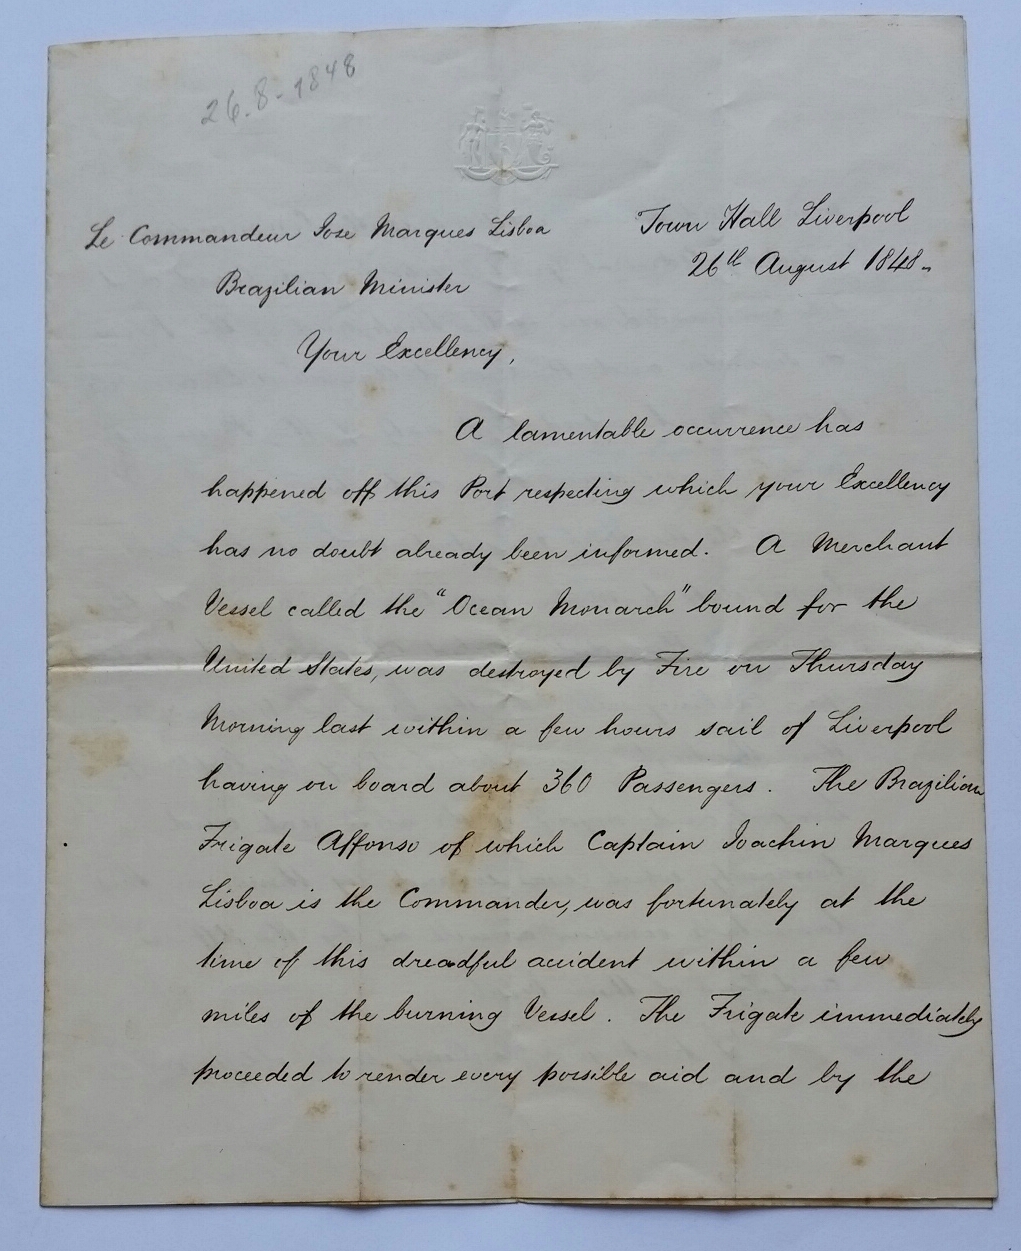 26.8-1848
Le Commandeur Jose Marques Lisboa
Brazilian Minister
Town Hall Liverpool
26th August 1848.
Your Excellency,
A lamentable occurrence has
happened off this Port respecting which your Excellency
has no doubt already been informed. A Merchant
Vessel called the "Ocean Monarch" bound for the
United States, was destroyed by Fire on Thursday
Morning last within a few hours sail of Liverpool
having on board about 360 Passengers. The Brazilian
Frigate Affonso of which Captain Joachin Marques
Lisboa is the Commander, was fortunately at the
time of this dreadful accident within a few
miles of the burning Vessel. The Frigate immediately
proceeded to render every possible aid and by the